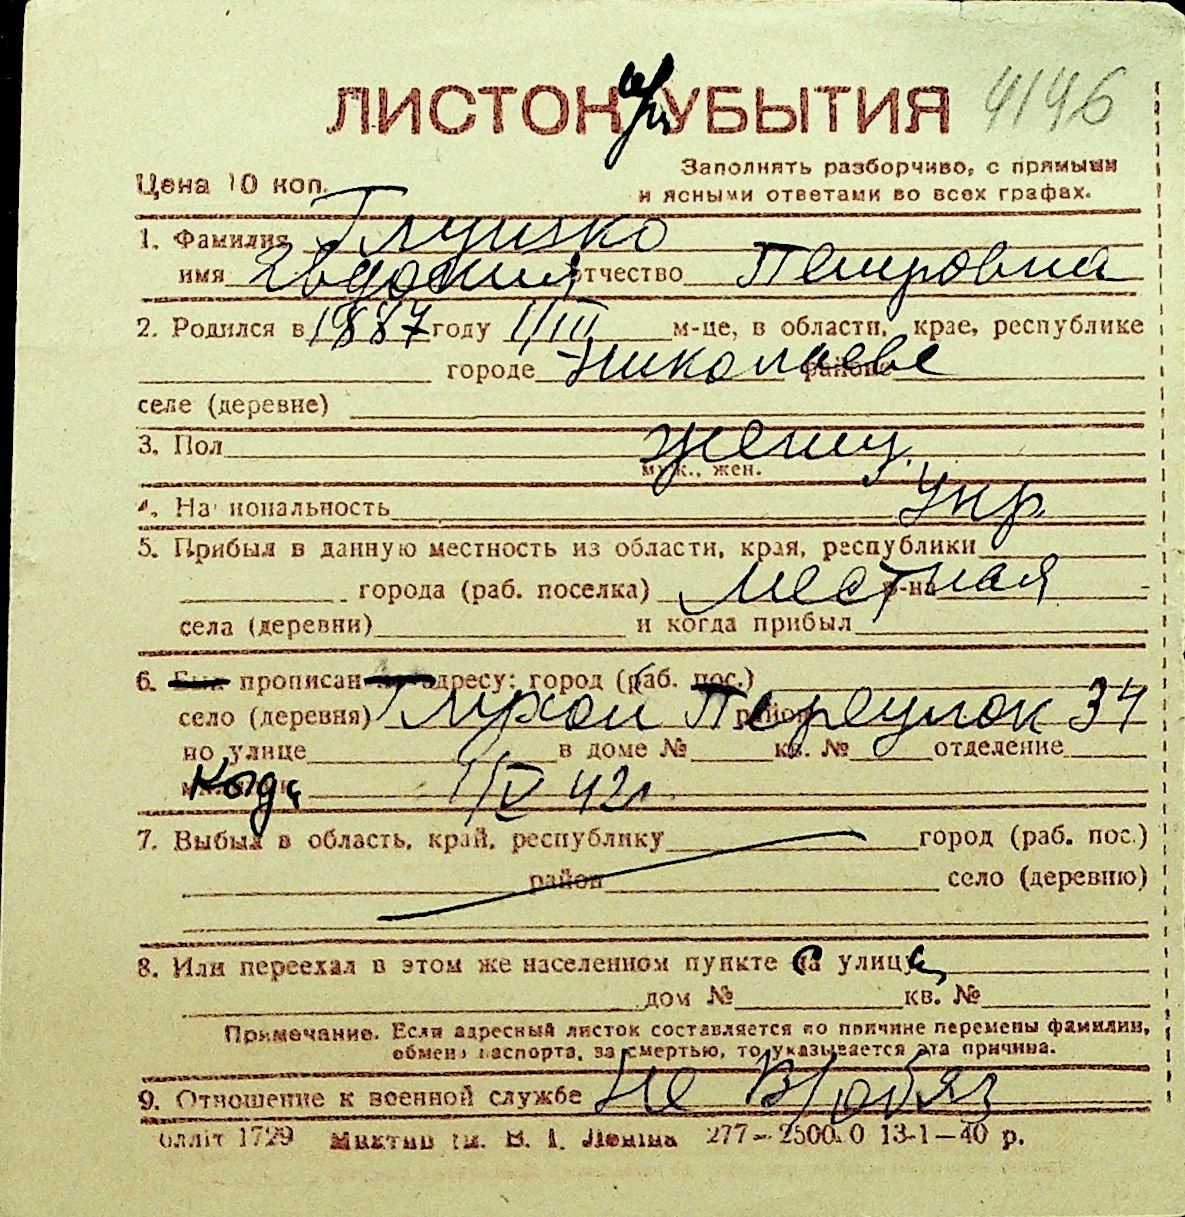 ЛИСТОК УБЫТИЯ 4146
Цена 10 коп.
Заполнять разборчиво, с прямыми
и ясными ответами во всех графах.
1. Фамилия Глушко
имя Явдокия отчество Петровна
2. Родился в 1887 году 1/III м-це, в области, крае, республике
городе Николаеве районе
селе (деревне)
3. Пол женщ.
муж., жен.
4. Национальность Укр.
5. Прибыл в данную местность из области, края, республики
города (раб. поселка) местная р-на
села (деревни) и когда прибыл
6. Был прописан по адресу: город (раб. пос.)
село (деревня) Глухой Переулок 34 район
по улице в доме № кв. № отделение
когда 1/V 42г.
7. Выбыл в область, край, республику город (раб. пос.)
район село (деревню)
8. Или переехал в этом же населенном пункте с улицы
дом № кв. №
Примечание. Если адресный листок составляется по причине перемены фамилии,
обмена паспорта, за смертью, то указывается эта причина.
9. Отношение к военной службе Не в/обяз
олліт 1729 Миктип ім. В. І. Леніна 277—2500.0 13-1—40 р.